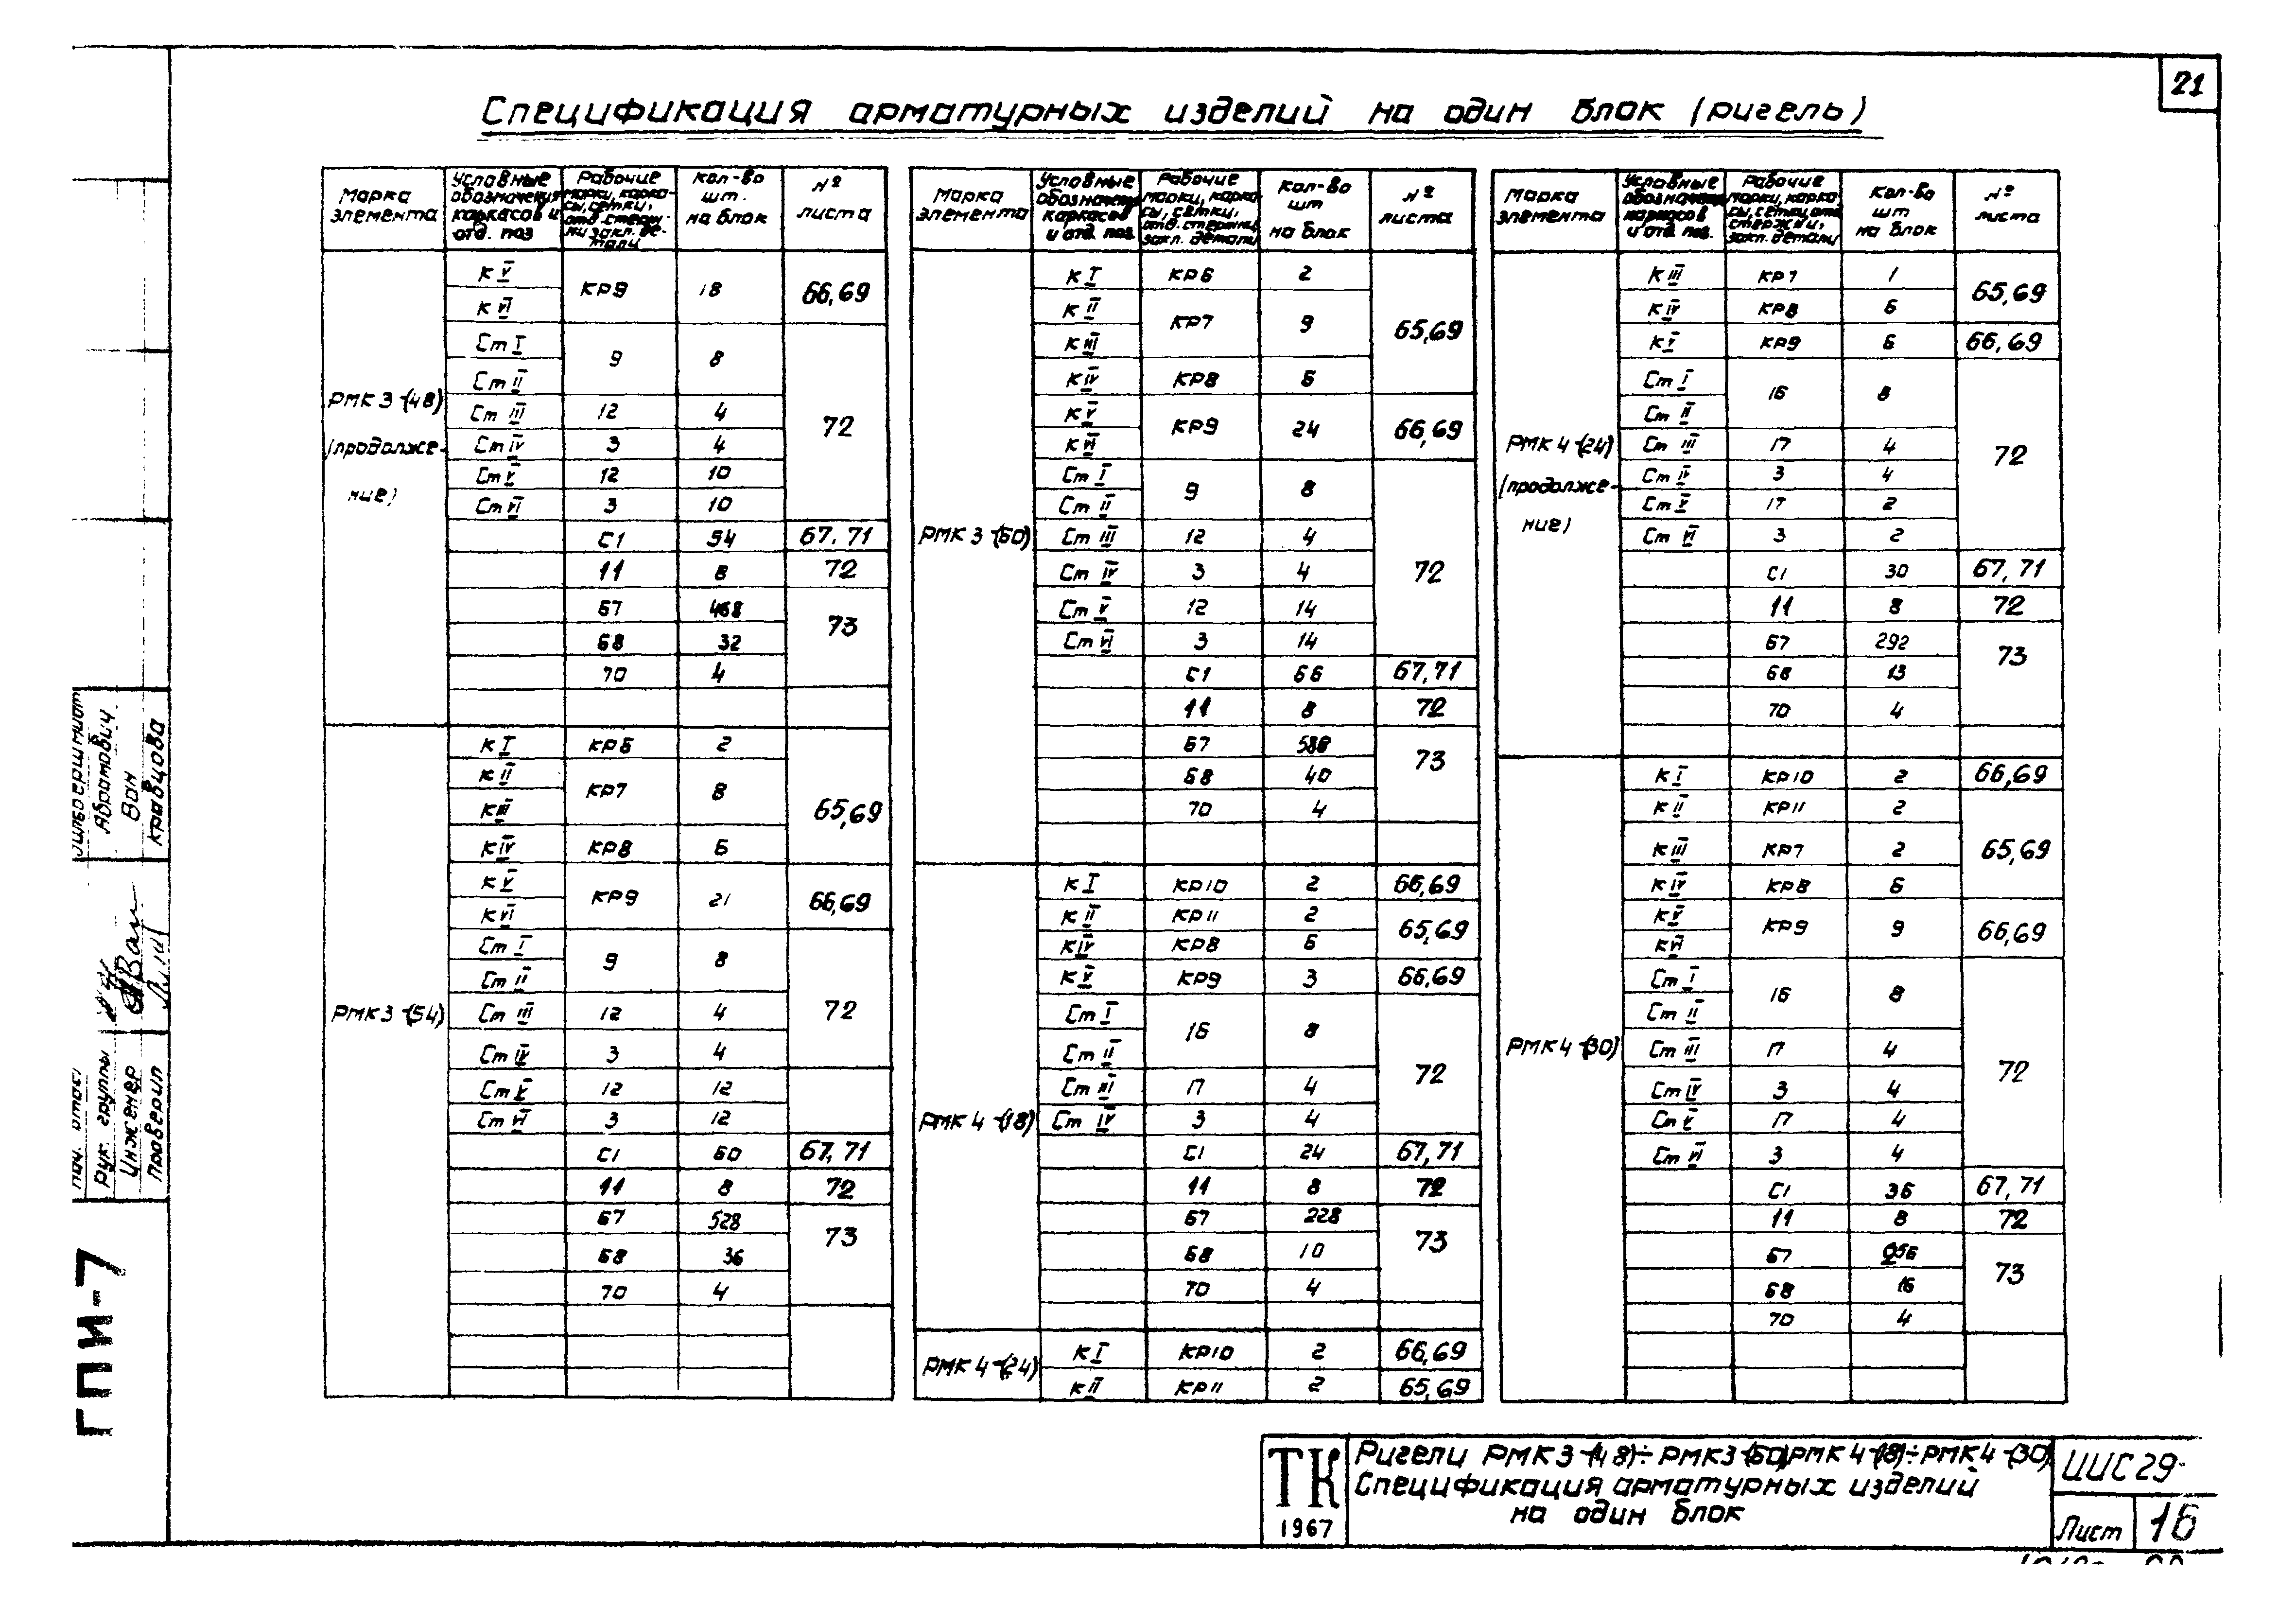 21
Спецификация арматурных изделий на один блок (ригель)
Марка элемента | Условные обозначения каркасов и отд. поз | Рабочие марки, каркасы, сетки, отд. стержни закл. детали | Кол-во шт. на блок | № листа
РМК3-(48) (продолжение)
К V | КР9 | 18 | 66,69
К VI
Ст I | 9 | 8 | 72
Ст II
Ст III | 12 | 4
Ст IV | 3 | 4
Ст V | 12 | 10
Ст VI | 3 | 10
С1 | 54 | 67,71
11 | 8 | 72
67 | 468 | 73
68 | 32
70 | 4
РМК3-(54)
К I | КР6 | 2 | 65,69
К II | КР7 | 8
К III
К IV | КР8 | 6
К V | КР9 | 21 | 66,69
К VI
Ст I | 9 | 8 | 72
Ст II
Ст III | 12 | 4
Ст IV | 3 | 4
Ст V | 12 | 12
Ст VI | 3 | 12
С1 | 60 | 67,71
11 | 8 | 72
67 | 528 | 73
68 | 36
70 | 4
Марка элемента | Условные обозначения каркасов и отд. поз. | Рабочие марки, каркасы, сетки, отд. стержни, закл. детали | Кол-во шт на блок | № листа
РМК3-(60)
К I | КР6 | 2 | 65,69
К II | КР7 | 9
К III
К IV | КР8 | 6
К V | КР9 | 24 | 66,69
К VI
Ст I | 9 | 8 | 72
Ст II
Ст III | 12 | 4
Ст IV | 3 | 4
Ст V | 12 | 14
Ст VI | 3 | 14
С1 | 66 | 67,71
11 | 8 | 72
67 | 588 | 73
68 | 40
70 | 4
РМК4-(18)
К I | КР10 | 2 | 66,69
К II | КР11 | 2 | 65,69
К IV | КР8 | 6
К V | КР9 | 3 | 66,69
Ст I | 16 | 8 | 72
Ст II
Ст III | 17 | 4
Ст IV | 3 | 4
С1 | 24 | 67,71
11 | 8 | 72
67 | 228 | 73
68 | 10
70 | 4
РМК4-(24)
К I | КР10 | 2 | 66,69
К II | КР11 | 2 | 65,69
Марка элемента | Условные обозначения каркасов и отд. поз. | Рабочие марки, каркасы, сетки, отд. стержни, закл. детали | Кол-во шт на блок | № листа
РМК4-(24) (продолжение)
К III | КР7 | 1 | 65,69
К IV | КР8 | 6
К V | КР9 | 6 | 66,69
Ст I | 16 | 8 | 72
Ст II
Ст III | 17 | 4
Ст IV | 3 | 4
Ст V | 17 | 2
Ст VI | 3 | 2
С1 | 30 | 67,71
11 | 8 | 72
67 | 292 | 73
68 | 13
70 | 4
РМК4-(30)
К I | КР10 | 2 | 66,69
К II | КР11 | 2 | 65,69
К III | КР7 | 2
К IV | КР8 | 6
К V | КР9 | 9 | 66,69
К VI
Ст I | 16 | 8 | 72
Ст II
Ст III | 17 | 4
Ст IV | 3 | 4
Ст V | 17 | 4
Ст VI | 3 | 4
С1 | 36 | 67,71
11 | 8 | 72
67 | 73
68 | 16
70 | 4
ТК
1967
Ригели РМК3-(48)÷РМК3-(60), РМК4-(18)÷РМК4-(30)
Спецификация арматурных изделий
на один блок
ИИС29
Лист 16
Абрамович
Ван
Кравцова
Рук. группы
Инженер
Проверил
ГПИ-7